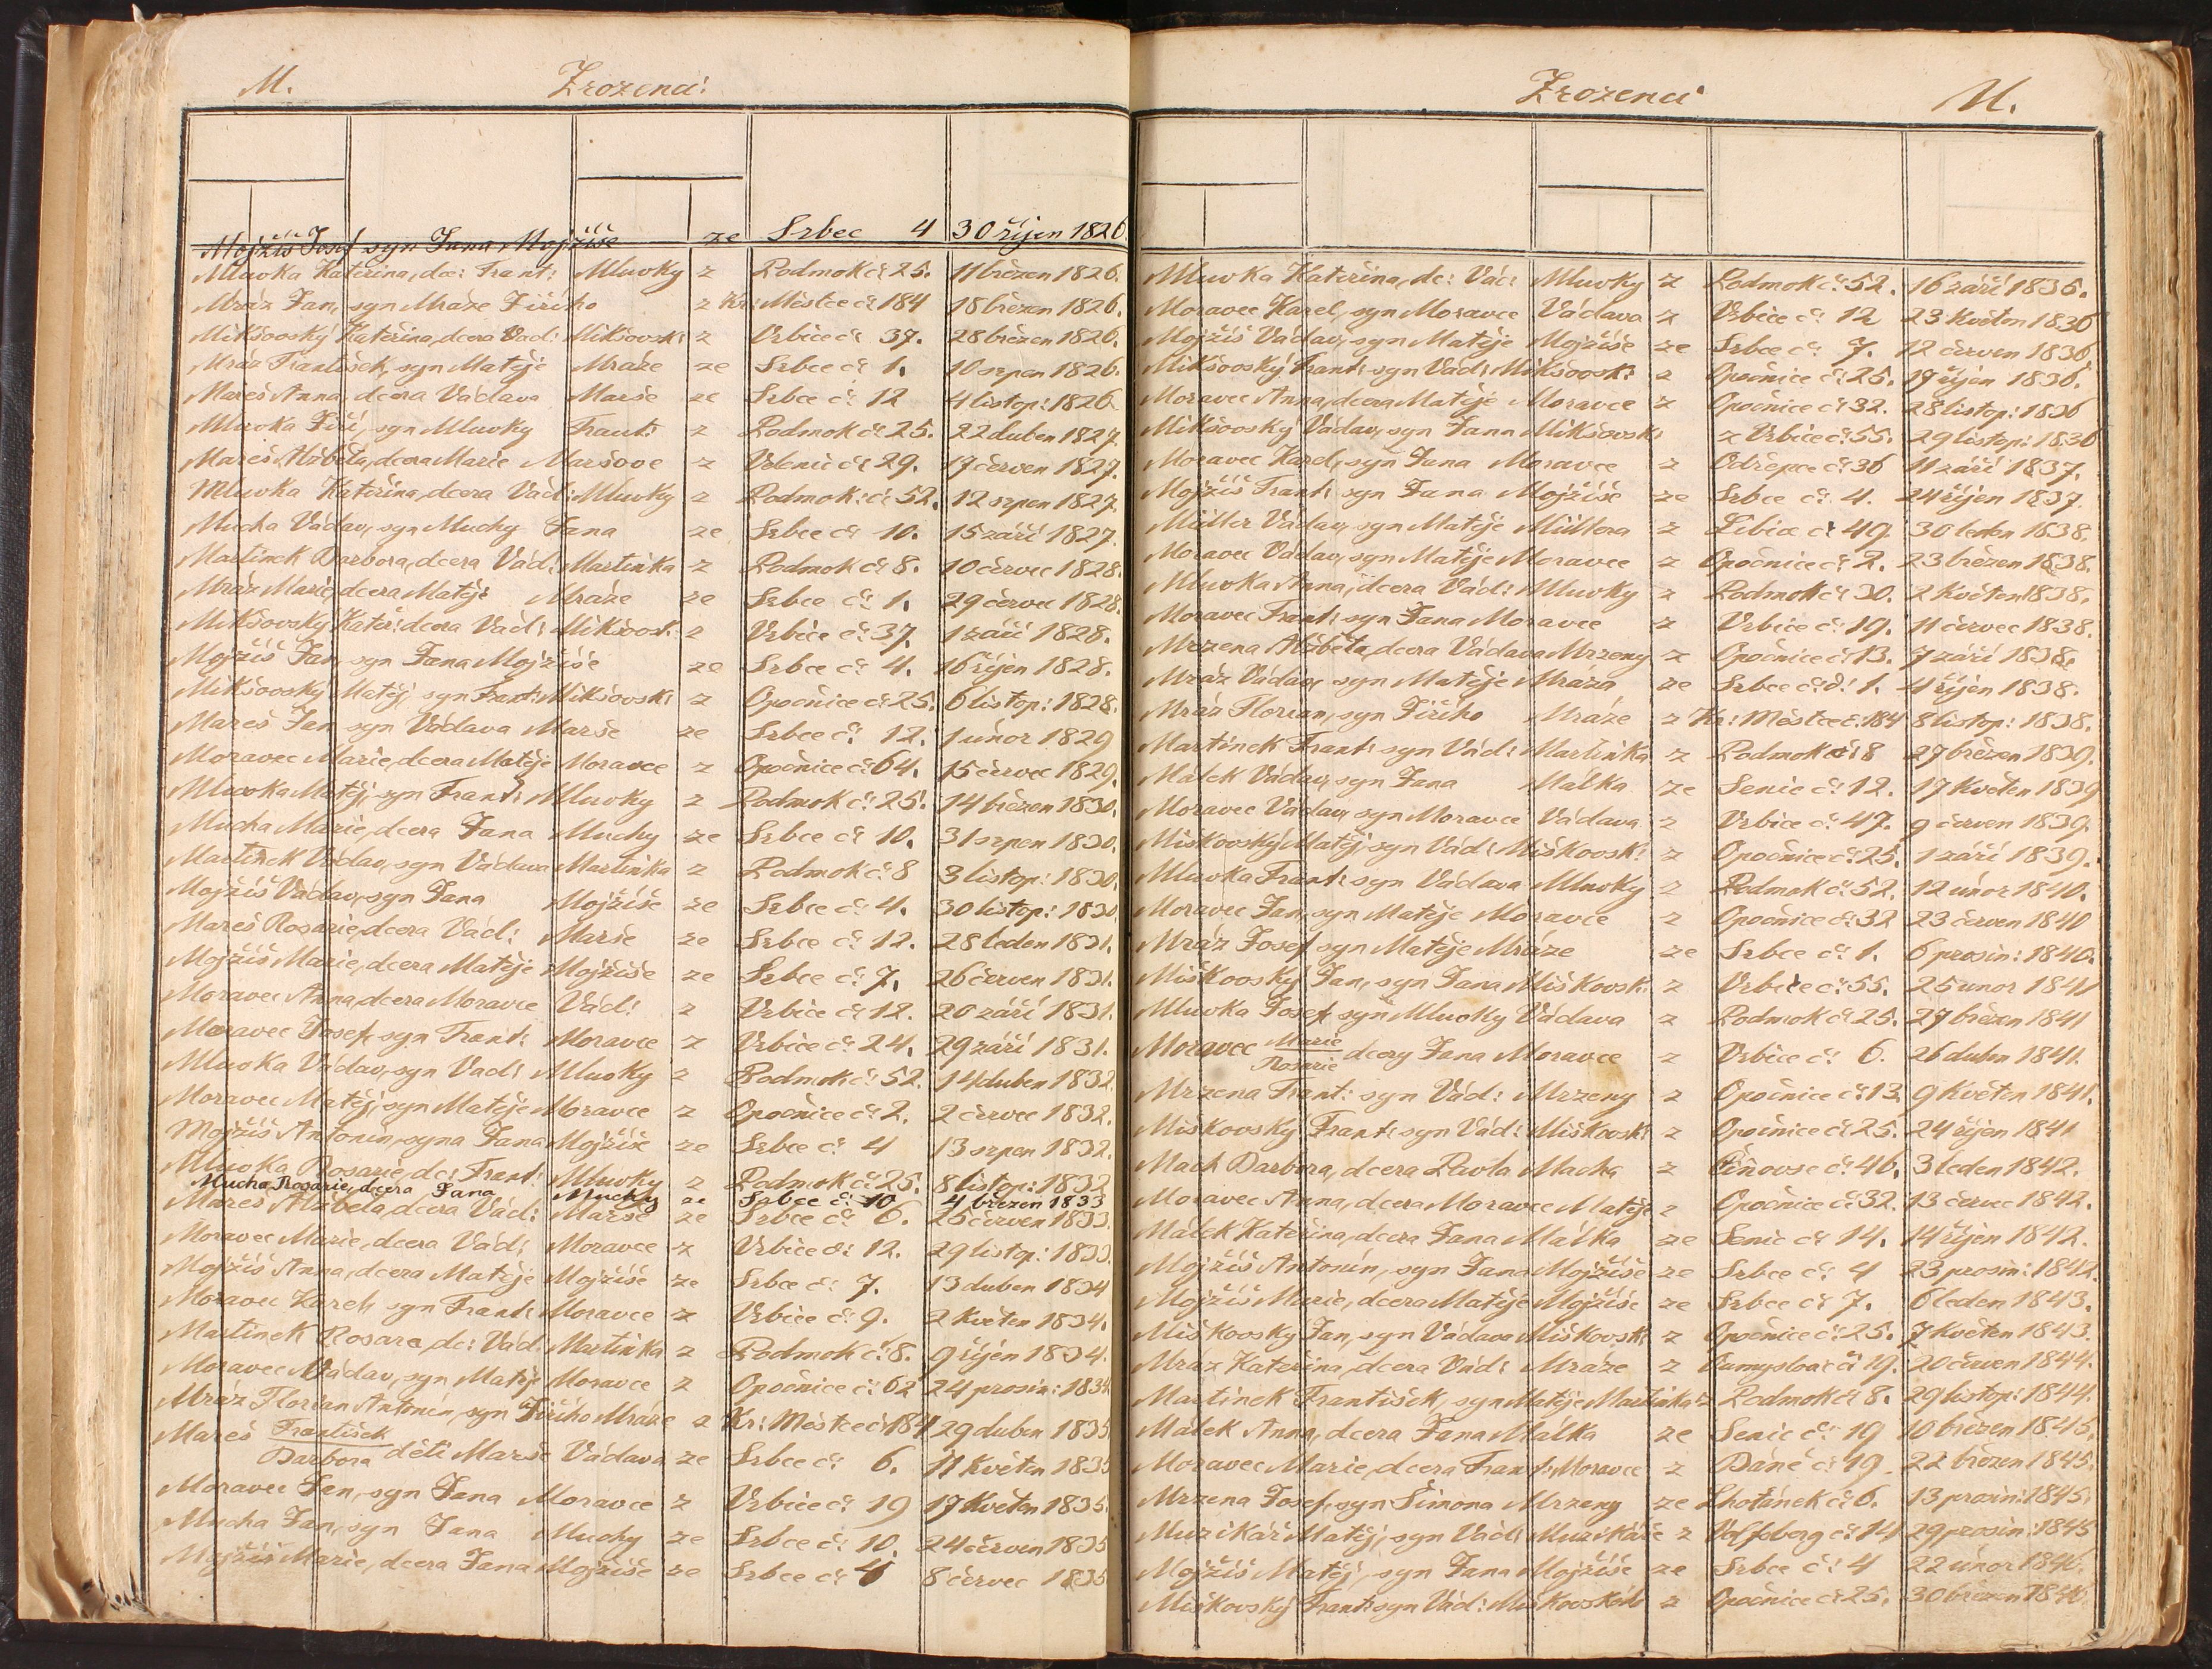 M. Zrozenci:
Mojžíš Josef syn Jana Mojžíše ze Srbec 4 30 říjen 1826.
Mluvka Kateřina, dc: Frant: Mluvky z Podmok č: 25. 11 březen 1826.
Mráz Jan, syn Mráze Jiřího z Kr: Městce č: 184 18 březen 1826.
Mikšovský Kateřina, dcera Václ: Mikšovsk: z Vrbice č: 37. 28 březen 1826.
Mráz František, syn Matěje Mráze ze Srbce č: 1. 10 srpen 1826.
Mareš Anna, dcera Václava Marše ze Srbce č: 12 4 listop: 1826.
Mluvka Jiří, syn Mluvky Frant: z Podmok č: 25. 22 duben 1827.
Mareš Alžběta, dcera Marie Maršove z č: 29. 17 červen 1827.
Mluvka Kateřina, dcera Václ: Mluvky z Podmok: č: 52. 12 srpen 1827.
Mucha Václav, syn Muchy Jana ze Srbce č: 10. 15 září 1827.
Martinek Barbora, dcera Václ: Martinka z Podmok č: 8. 10 červec 1828.
Mráz Marie, dcera Matěje Mráze ze Srbce č: 1. 29 červec 1828.
Mikšovský Kateř: dcera Václ: Mikšovsk: z Vrbice č: 37. 1 září 1828.
Mojžíš Jan, syn Jana Mojžíše ze Srbce č: 4. 16 říjen 1828.
Mikšovský Matěj, syn Frant: Mikšovsk: z Opočnice č: 25. 6 listop: 1828.
Mareš Jan syn Václava Marše ze Srbce č: 12. 1 únor 1829
Moravec Marie, dcera Matěje Moravce z Opočnice č: 64. 15 červec 1829.
Mluvka Matěj, syn Frant: Mluvky z Podmok č: 25. 14 březen 1830.
Mucha Marie, dcera Jana Muchy ze Srbce č: 10. 31 srpen 1830.
Martinek Václav, syn Václava Martinka z Podmok č: 8 3 listop: 1830.
Mojžíš Václav, syn Jana Mojžíše ze Srbce č: 4. 30 listop: 1830.
Mareš Rosarie, dcera Václ: Marše ze Srbce č: 12. 28 leden 1831.
Mojžíš Marie, dcera Matěje Mojžíše ze Srbce č: 7. 26 červen 1831.
Moravec Anna, dcera Moravce Václ: z Vrbice č: 12. 20 září 1831.
Moravec Josef, syn Frant: Moravce z Vrbice č: 24. 29 září 1831.
Mluvka Václav, syn Vacl: Mluvky z Podmok č: 52. 14 duben 1832.
Moravec Matěj, syn Matěje Moravce z Opočnice č: 2. 2 červec 1832.
Mojžíš Antonín, syna Jana Mojžíše ze Srbce č: 4 13 srpen 1832.
Mluvka Rosarie, dc: Frant: Mluvky z Podmok č: 25. 8 listop: 1832
Mucha Rosarie, dcera Jana Muchy ze Srbce č: 10 4 březen 1833
Mareš Alžběta, dcera Václ: Marše ze Srbce č: 6. 25 červen 1833.
Moravec Marie, dcera Václ: Moravce z Vrbice č: 12. 29 listop: 1833.
Mojžíš Anna, dcera Matěje Mojžíše ze Srbce č: 7. 13 duben 1834
Moravec Karel, syn Frant: Moravce z Vrbice č: 9. 2 Květen 1834.
Martinek Rosara, dc: Václ: Martinka z Podmok č: 8. 9 říjen 1834.
Moravec Václav, syn Matěj: Moravce z Opočnice č: 62 24 prosin: 1834
Mráz Florian Antonín, syn Jiřího Mráze z Kr: Městce č: 184 29 duben 1835
Mareš František
Barbora děti Marše Václava ze Srbce č: 6. 11 Květen 1835
Moravec Jan, syn Jana Moravce z Vrbice č: 19 17 Květen 1835.
Mucha Jan, syn Jana Muchy ze Srbce č: 10. 24 červen 1835
Mojžíš Marie, dcera Jana Mojžíše ze Srbce č: 4 8 červec 1835
Zrozenci M.
Mluvka Kateřina, dc: Vác: Mluvky z Podmok č: 52. 16 září 1836.
Moravec Karel, syn Moravce Václava z Vrbice č: 12 23 Květen 1836
Mojžíš Václav, syn Matěje Mojžíše ze Srbce č: 7. 12 červen 1836.
Mikšovský Frant: syn Václ: Mikšovsk: z Opočnice č: 25. 17 říjen 1836.
Moravec Anna, dcera Matěje Moravce z Opočnice č: 32. 28 listop: 1836
Mikšovský Václav, syn Jana Mikšovsk: z Vrbice č: 55. 29 listop: 1836
Moravec Karel, syn Jana Moravce z Odřepce č: 36 11 září 1837.
Mojžíš Frant: syn Jana Mojžíše ze Srbce č: 4. 24 říjen 1837.
Müller Václav, syn Matěje Müllera z Libice č: 49. 30 leden 1838.
Moravec Václav, syn Matěje Moravce z Opočnice č: 2. 23 březen 1838.
Mluvka Anna, dcera Václ: Mluvky z Podmok č: 30. 2 Květen 1838.
Moravec Frant: syn Jana Moravce z Vrbice č: 19. 11 červec 1838.
Mrzena Alžběta, dcera Václava Mrzeny z Opočnice č: 13. 7 září 1838.
Mráz Václav, syn Matěje Mraza ze Srbce č: 1. 4 říjen 1838.
Mráz Florian, syn Jiřího Mráze z Kr: Městce č: 184 8 listop: 1838.
Martinek Frant: syn Václ: Martinka z Podmok č: 8 27 březen 1839.
Málek Václav, syn Jana Málka ze Senic č: 12. 17 Květen 1839
Moravec Václav, syn Moravce Václava z Vrbice č: 47. 9 červen 1839.
Miškovský Matěj, syn Václ: Miškovsk: z Opočnice č: 25. 1 září 1839.
Mluvka Frant: syn Václava Mluvky z Podmok č: 52. 12 únor 1840.
Moravec Jan, syn Matěje Moravce z Opočnice č: 32 23 červen 1840
Mráz Josef syn Matěje Mráze ze Srbce č: 1. 6 prosin: 1840.
Miškovský Jan, syn Jana Miškovsk: z Vrbice č: 55. 25 únor 1841
Mluvka Josef, syn Mluvky Václava z Podmok č: 25. 27 březn 1841
Moravec Marie
Rosarie dcery Jana Moravce z Vrbice č: 6. 26 duben 1841.
Mrzena Frant: syn Václ: Mrzeny z Opočnice č: 13. 9 Květen 1841.
Miškovský Frant: syn Václ: Miškovsk: z Opočnice č: 25. 24 říjen 1841
Mach Barbora, dcera Pavla Macha z Činovse č: 46. 3 leden 1842.
Moravec Anna, dcera Moravce Matěje z Opočnice č: 32. 13 červec 1842.
Málek Kateřina, dcera Jana Málka ze Senic č: 14. 14 říjen 1842.
Mojžíš Antonín, syn Jana Mojžíše ze Srbce č: 4 23 prosin: 1842.
Mojžíš Marie, dcera Matěje Mojžíše ze Srbce č: 7. 6 leden 1843.
Miškovský Jan, syn Václava Miškovsk: z Opočnice č: 25. 7 Květen 1843.
Mráz Kateřina, dcera Václ: Mráze z č: 19. 20 červen 1844.
Martinek František, syn Matěje Martinka z Podmok č: 8. 29 listop: 1844.
Málek Anna, dcera Jana Málka ze Senic č: 19 10 březen 1845.
Moravec Marie, dcera Frant: Moravce z Báně č: 19. 22 březen 1845.
Mrzena Josef, syn Šimona Mrzeny ze Lhotánek č: 6. 13 prosin: 1845.
Muzikář Matěj, syn Václ: Muzikáře z Volfsberg č: 14 29 prosin: 1845
Mojžíš Matěj, syn Jana Mojžíše ze Srbce č: 4 22 únor 1846.
Miškovský Frant: syn Václ: Miškovského z Opočnice č: 25. 30 březen 1846.